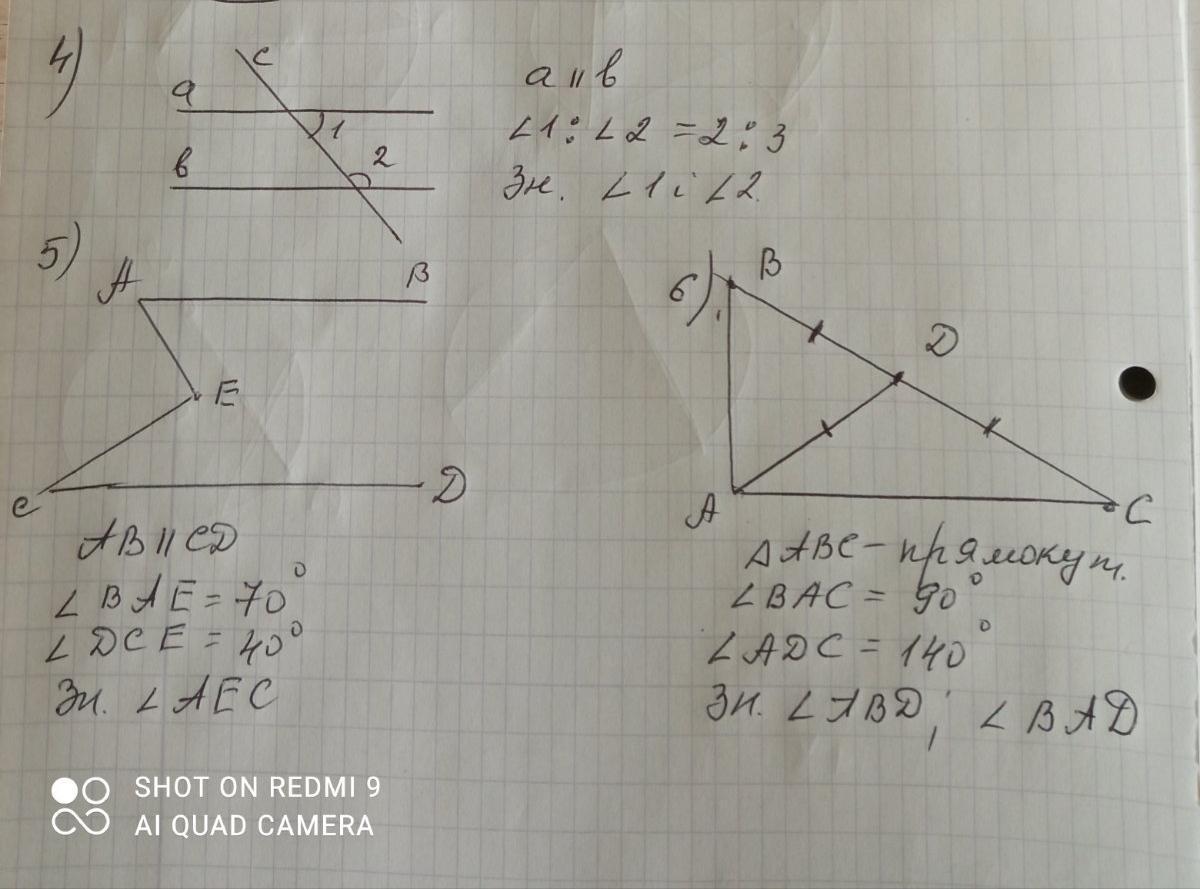 4)
c
a
1
2
в
a || в
∠1 : ∠2 = 2 : 3
Зн. ∠1 і ∠2.
5)
A
B
E
C
D
AB || CD
∠BAE = 70°
∠DCE = 40°
Зн. ∠AEC
6)
B
D
A
C
△ABC - прямокут.
∠BAC = 90°
∠ADC = 140°
Зн. ∠ABD; ∠BAD
SHOT ON REDMI 9
AI QUAD CAMERA